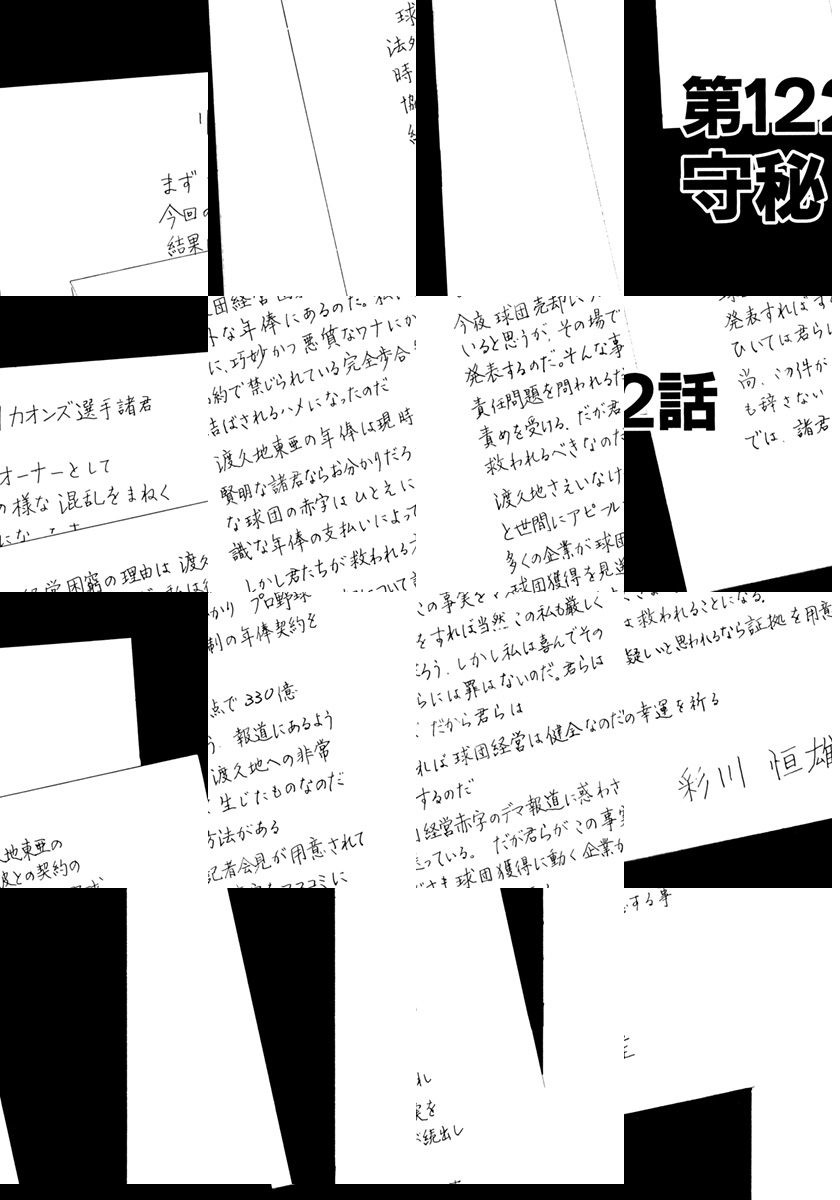 まず
今回の
結果
球
法外
時
協
第122
守秘
カオンズ選手諸君
オーナーとして
の様な混乱をまねく
経営困窮の理由は渡久
な年俸にあるのだ。私
に、巧妙かつ悪質なワナにか
約で禁じられている完全歩合
結ばされるハメになったのだ
渡久地東亜の年俸は現時
賢明な諸君ならお分かりだろ
な球団の赤字はひとえに
識な年俸の支払いによって
しかし君たちが救われる
今夜球団売却に
いると思うが、その場で
発表するのだ。そんな事
責任問題を問われるだ
責めを受ける、だが君
救われるべきなのだ
渡久地さえいなけ
と世間にアピール
多くの企業が球団
2話
発表すればす
ひいては君らに
尚、この件が
も辞さない
では、諸君
地東亜の
彼との契約の
かり プロ野球
制の年俸契約を
点で330億
う、報道にあるよう
渡久地への非常
生じたものなのだ
方法がある
記者会見が用意されて
この事実を
をすれば当然この私も厳しく
だろう、しかし私は喜んでその
らには罪はないのだ。君らは
だから君らは
れば球団経営は健全なのだ
するのだ
経営赤字のデマ報道に惑わさ
っている。だが君らがこの事実
球団獲得に動く企業が
救われることになる。
疑いと思われるなら証拠を用意
の幸運を祈る
彩川 恒雄
れ
実を
続出し
する事